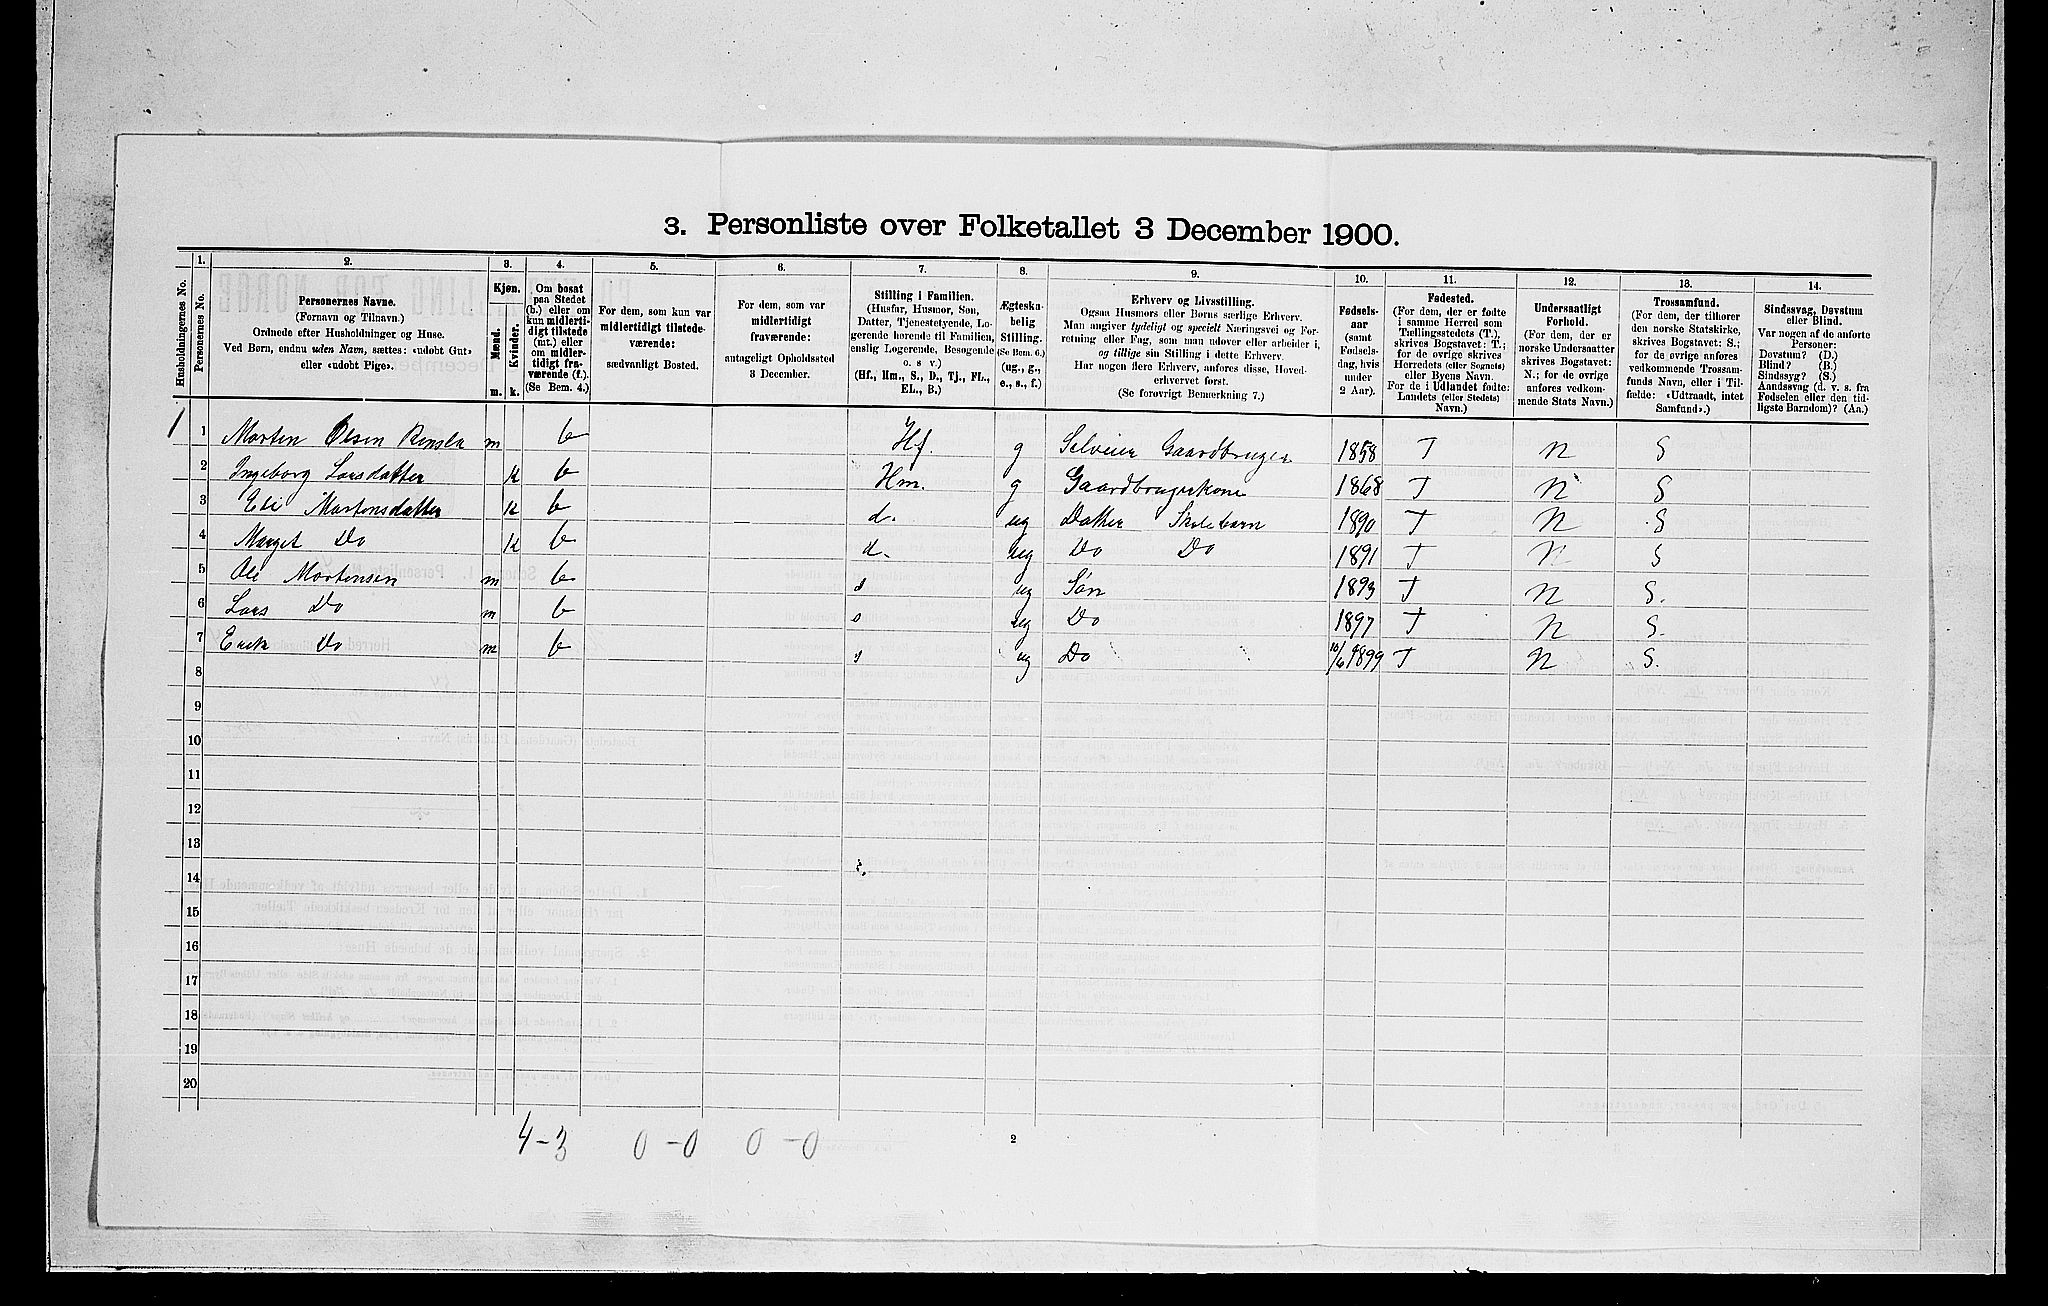 3. Personliste over Folketallet 3 December 1900.
1. 2. 3. 4. 5. 6. 7. 8. 9. 10. 11. 12. 13. 14.
Husholdningernes No.
Personernes No.
Personernes Navne.
(Fornavn og Tilnavn.)
Ordnede efter Husholdninger og Huse.
Ved Børn, endnu uden Navn, sættes: «udøbt Gut»
eller «udøbt Pige».
Kjøn.
Mænd.
Kvinder.
m. k.
Om bosat
paa Stedet
(b.) eller om
kun midlerti-
digt tilstede
(mt.) eller
om midler-
tidigt fra-
værende (f.).
(Se Bem. 4.)
For dem, som kun var
midlertidigt tilstede-
værende:
sædvanligt Bosted.
For dem, som var
midlertidigt
fraværende:
antageligt Opholdssted
3 December.
Stilling i Familien.
(Husfar, Husmor, Søn,
Datter, Tjenestetyende, Lo-
gerende hørende til Familien,
enslig Logerende, Besøgende
o. s. v.)
(Hf., Hm., S., D., Tj., FL.,
EL., B.)
Ægteska-
belig
Stilling.
(Se Bem. 6.)
(ug., g.,
e., s., f.)
Erhverv og Livsstilling.
Ogsaa Husmors eller Børns særlige Erhverv.
Man angiver tydeligt og specielt Næringsvei og For-
retning eller Fag, som man udøver eller arbeider i,
og tillige sin Stilling i dette Erhverv.
Har nogen flere Erhverv, anføres disse, Hoved-
erhvervet først.
(Se forøvrigt Bemærkning 7.)
Fødsels-
aar
(samt
Fødsels-
dag, hvis
under
2 Aar).
Fødested.
(For dem, der er fødte
i samme Herred som
Tællingsstedets (T.),
skrives Bogstavet: T.;
for de øvrige skrives
Herredets (eller Sognets)
eller Byens Navn.
For de i Udlandet fødte:
Landets (eller Stedets)
Navn.)
Undersaatligt
Forhold.
(For dem, der er
norske Undersaatter
skrives Bogstavet:
N.; for de øvrige
anføres vedkom-
mende Stats Navn.)
Trossamfund.
(For dem, der tilhører
den norske Statskirke,
skrives Bogstavet: S.;
for de øvrige anføres
vedkommende Trossam-
funds Navn, eller i Til-
fælde: «Udtraadt, intet
Samfund».)
Sindssvag, Døvstum
eller Blind.
Var nogen af de anførte
Personer:
Døvstum? (D.)
Blind? (B.)
Sindssyg? (S.)
Aandssvag (d. v. s. fra
Fødselen eller den tid-
ligste Barndom)? (Aa.)
1 1 Morten Olsen m b Hf. g Selveier Gaardbruger 1858 T N S
2 Ingeborg Larsdatter k b Hm. g Gaardbrugerkone 1868 T N S
3 Eli Mortensdatter k b d. ug Datter Skolebarn 1890 T N S
4 Marget Do k b d. ug Do Do 1891 T N S
5 Ole Mortensen m b s ug Søn 1893 T N S.
6 Lars Do m b s ug Do 1897 T N S.
7 Erik Do m b s ug Do 10/6 1899 T N S.
8
9
10
11
12
13
14
15
16
17
18
19
20
4-3 0-0 0-0
2